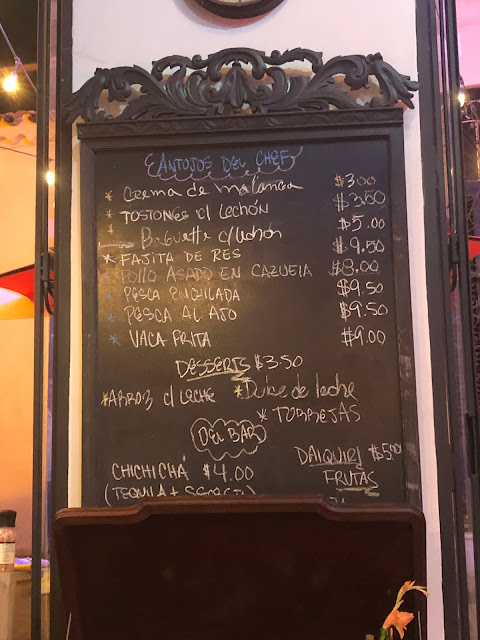 ANTOJOS DEL CHEF
* Crema de malanga $3.00
* TOSTONES c/ LECHÓN $3.50
* Baguette c/lechón $5.00
* FAJITA DE RES $9.50
* POLLO ASADO EN CAZUELA $8.00
* PESCA ENCHILADA $9.50
* PESCA AL AJO $9.50
* VACA FRITA $9.00
DESSERTS $3.50
*ARROZ c/ LECHE *Dulce de leche
* TORREJAS
DEL BAR
CHICHICHÁ $4.00 DAIQUIRI $5.00
(TEQUILA + FRUTAS